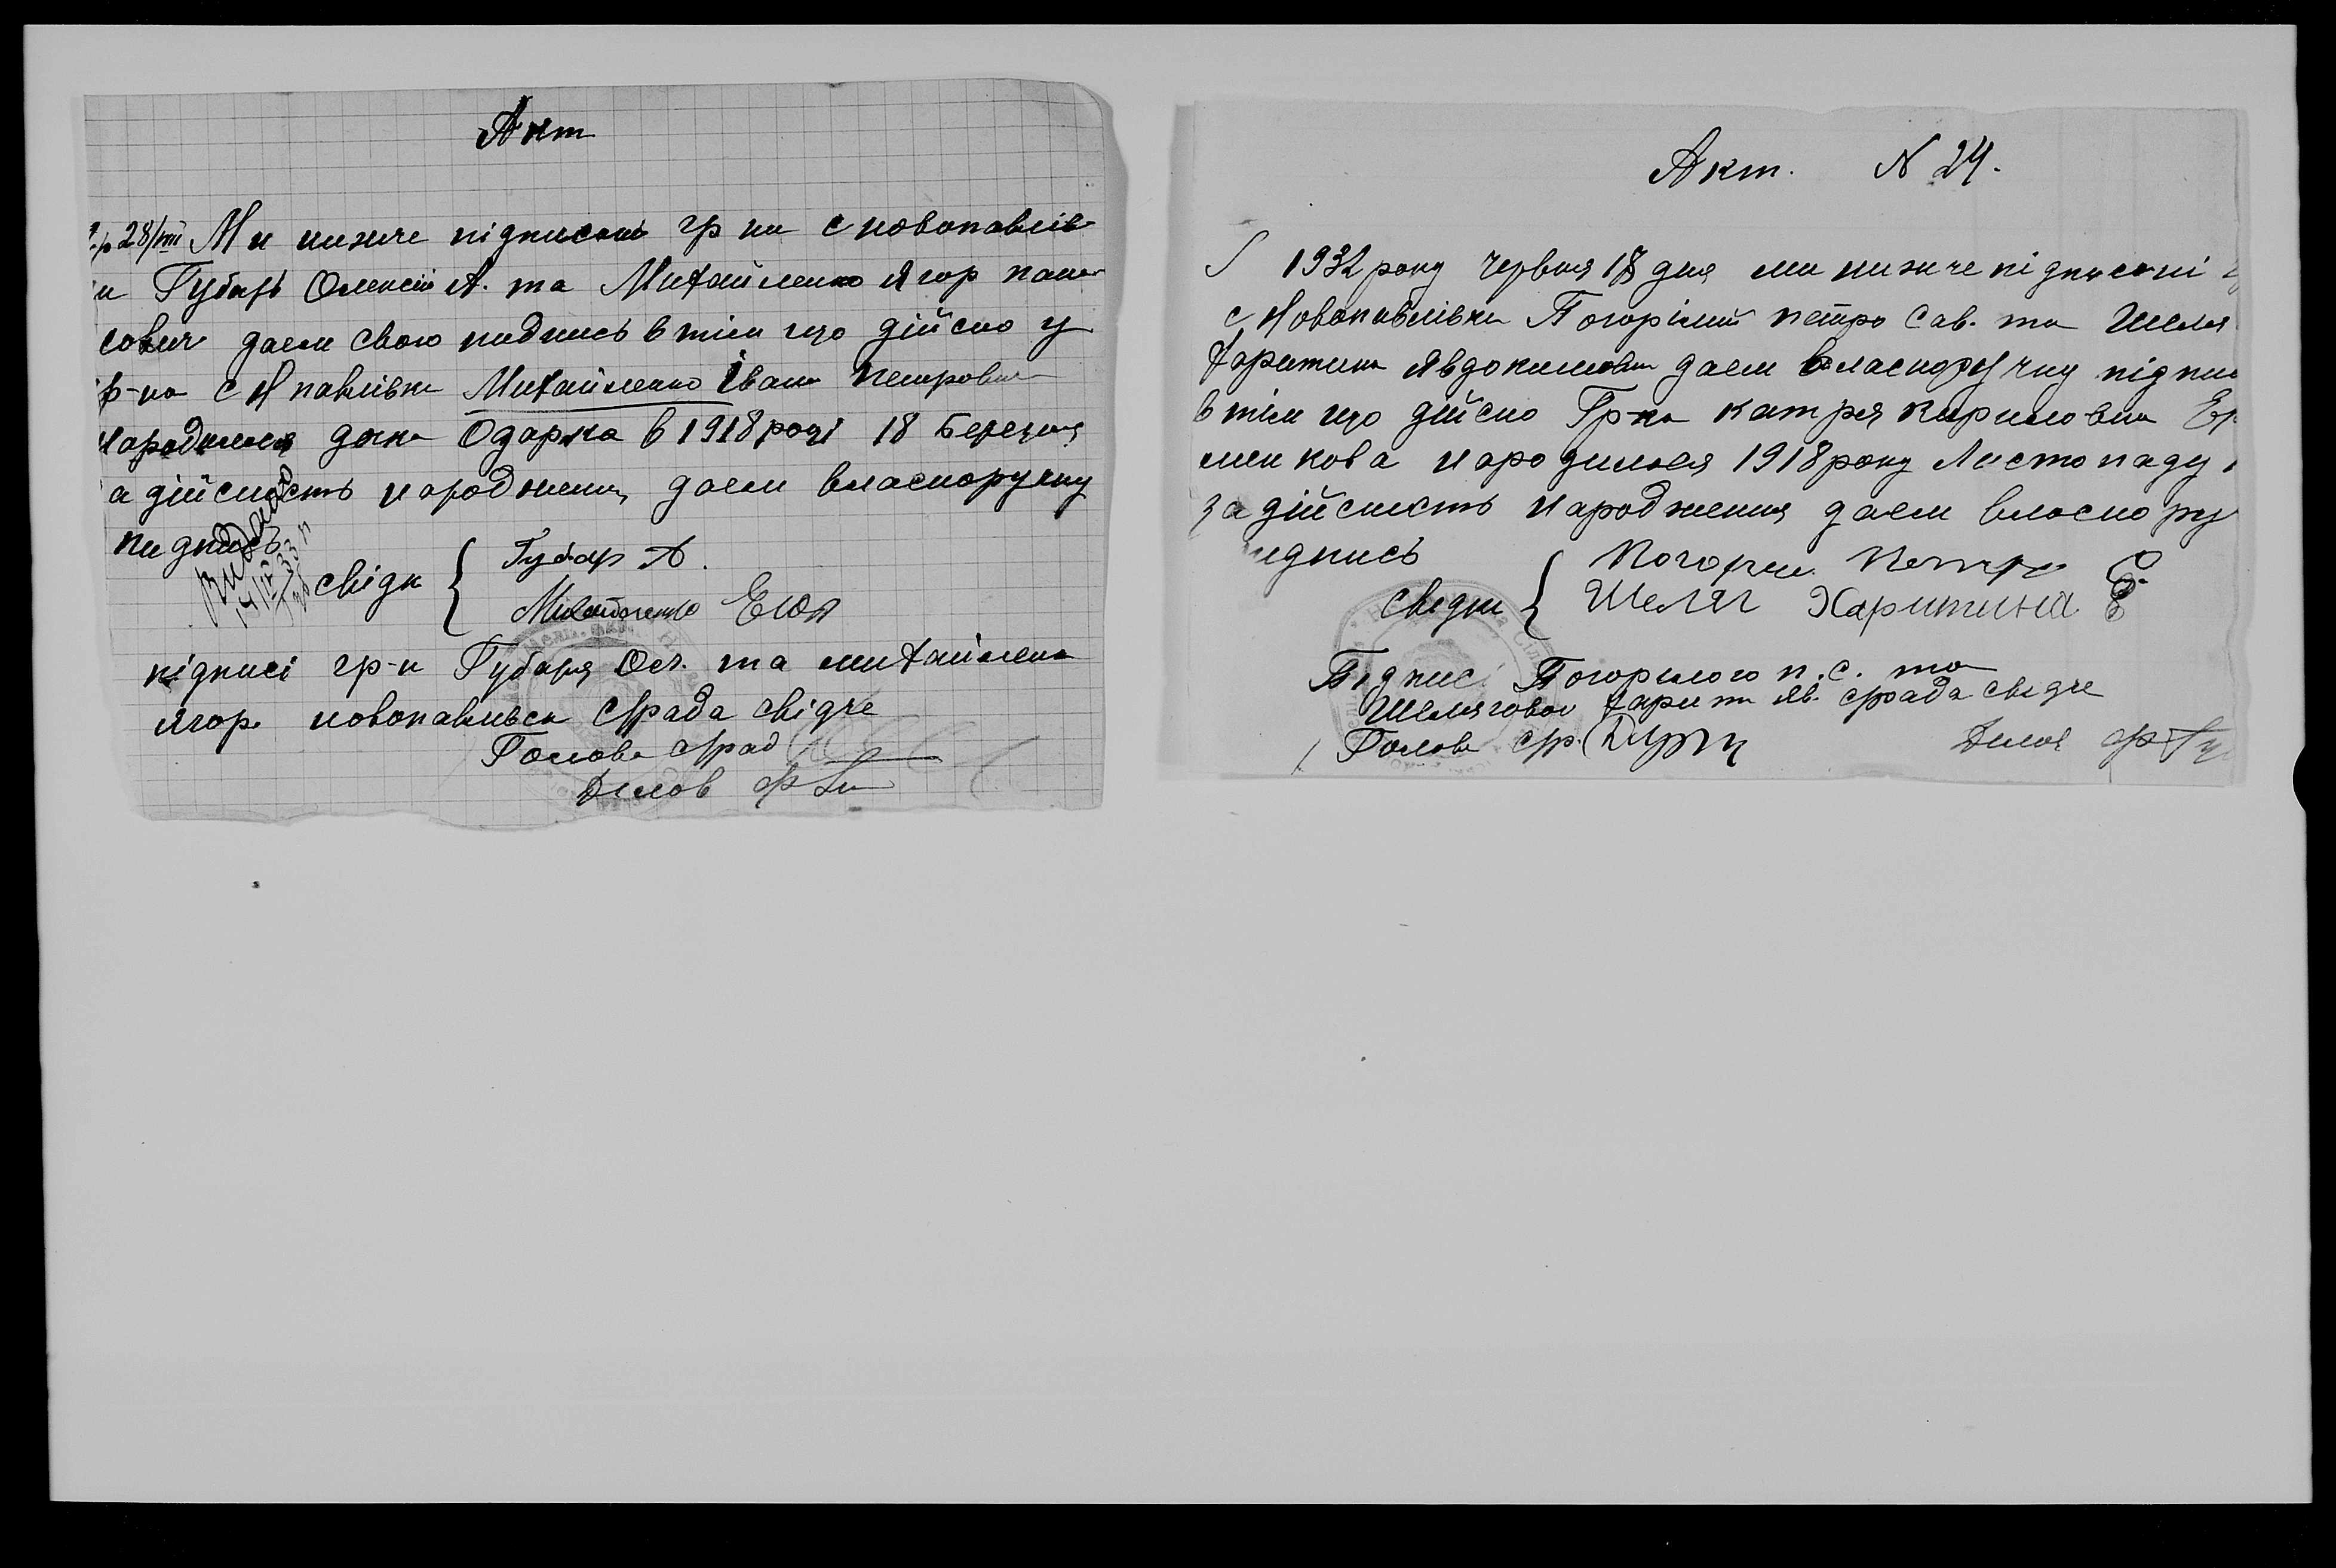 Акт
28/VIII Ми нижче підписані гр ни с новопавлів
и Губарь Олексій А. та Михайленко Ягор пана
сович даем свою пидпись в тім що дійсно у
р-на с Н павлівки Михайленко Івана Петровича
народилася дочка Одарка в 1918 році 18 Березня
а дійсность народження даем власноручну
пидпись
видано
свідк { Губар А.
Михайленко
підписі гр-н Губаря Ол. та михайленка
ягор. новопавливск с/рада свідче
Голова с/рад
Делов
Акт. N 24.
1932 року червня 18 дня ми нижче підписані
с Новопавлівки Погорілий петро Сав. та Шеляг
харитина Явдокимовна даем власноручну підпис
в тім що дійсно Гр-ка катря кириловна Ер
менкова народилася 1918 року Листопаду
за дійсність народження даем власнору
идпись
свидки { Погорили Петро С.
Шеляг Харитина Е
Підписі Погорилого п.с. та
Шеляговои харит Яв. с/рада свідче
Голова с/р.
Делов